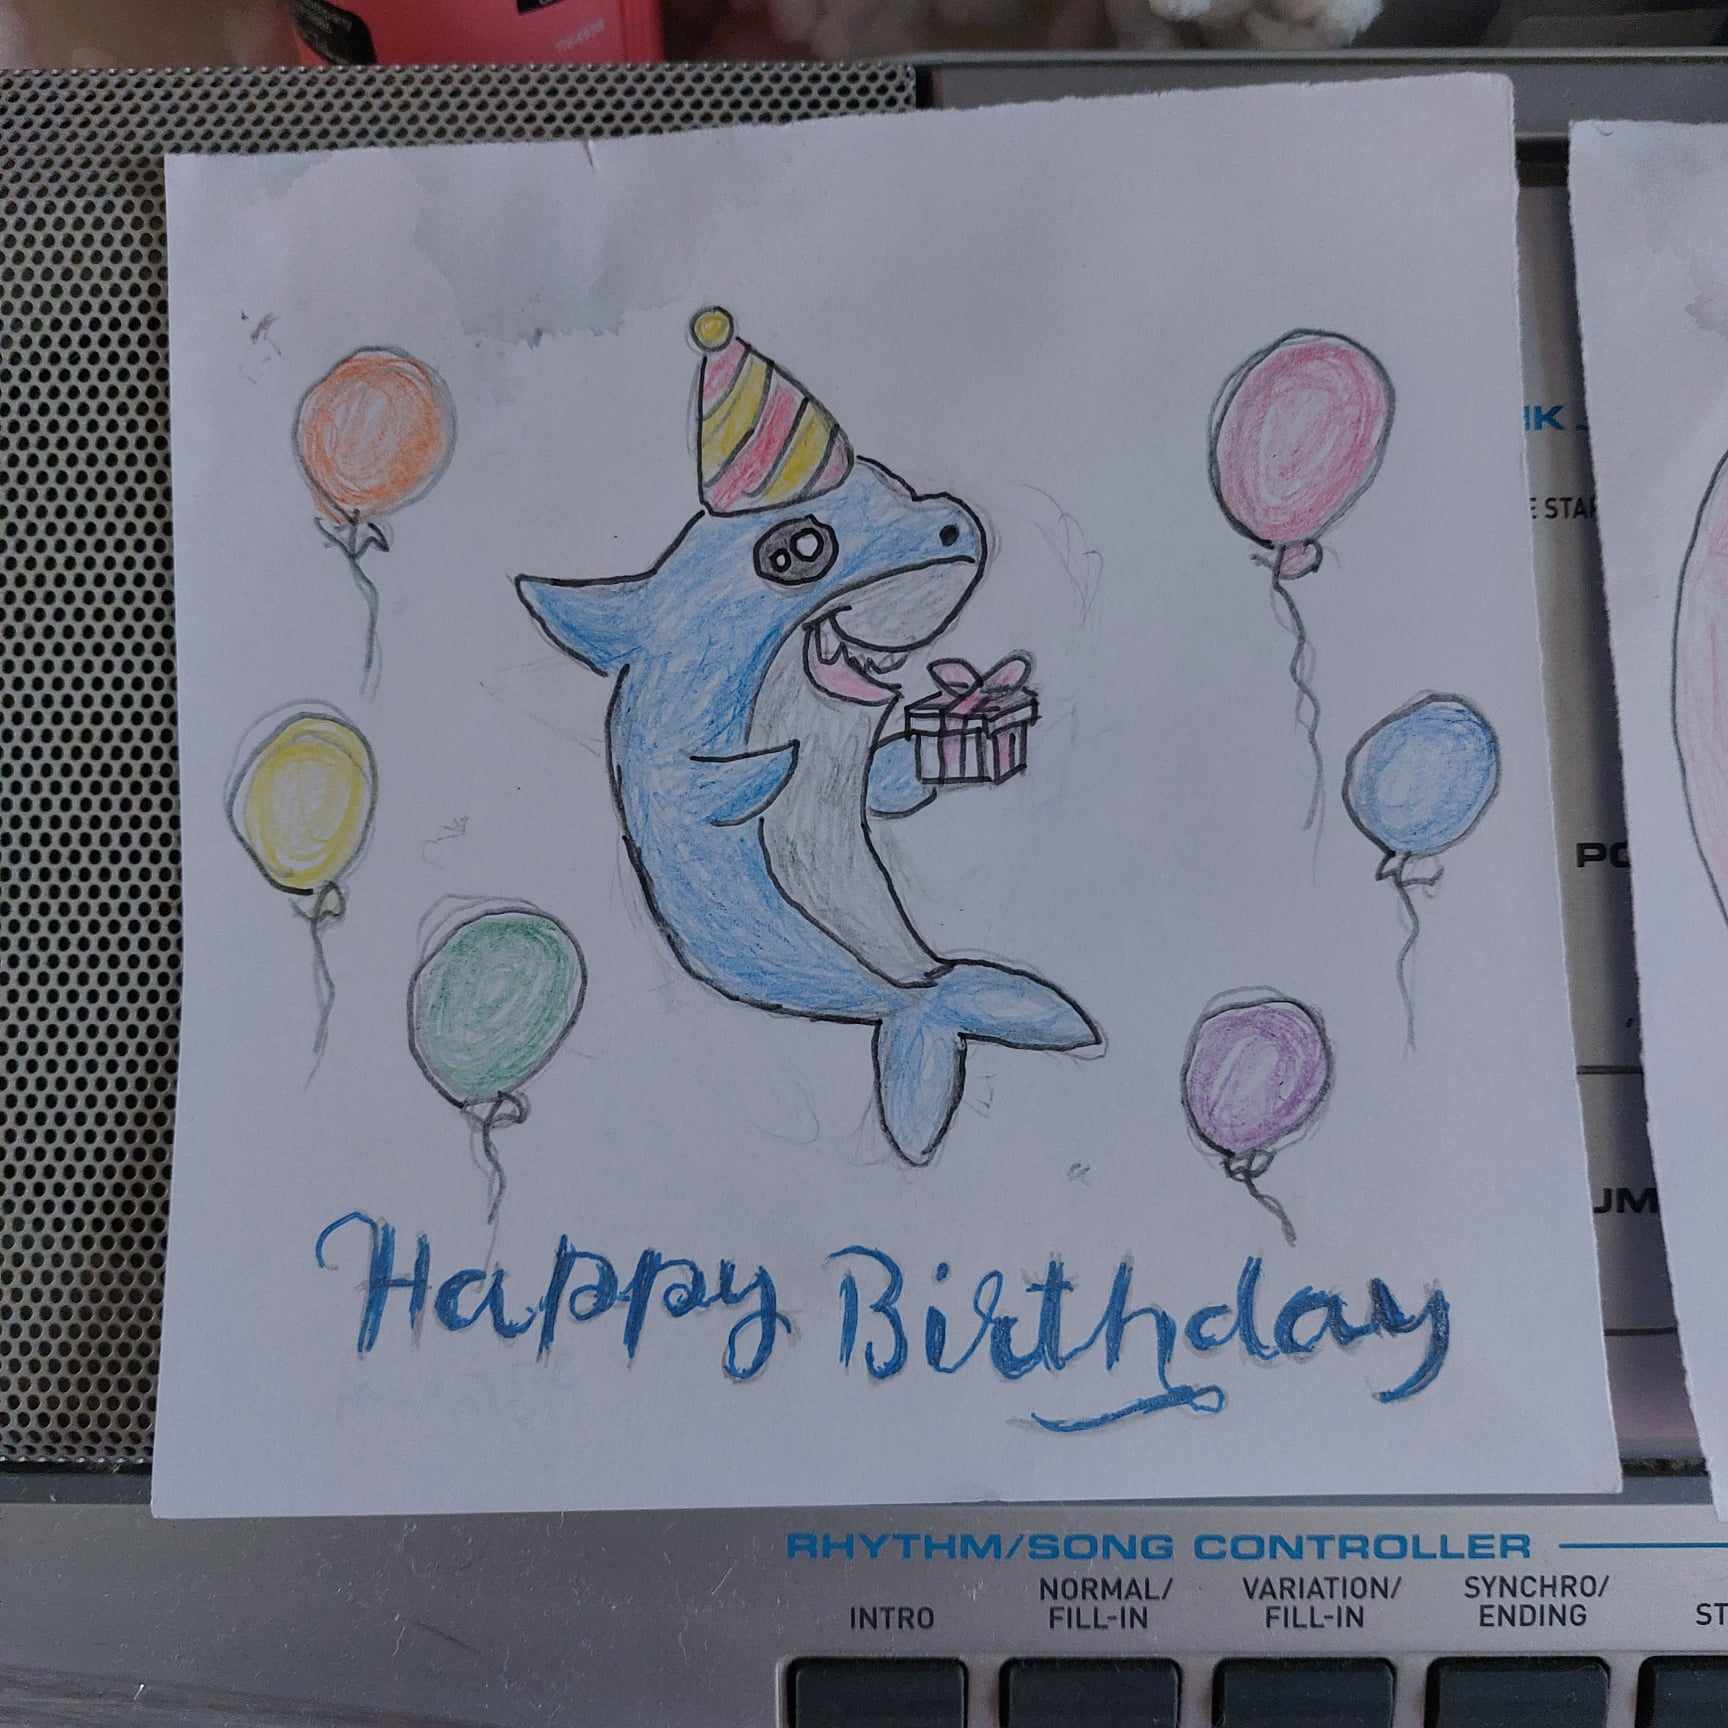 Happy Birthday
RHYTHM/SONG CONTROLLER
INTRO
NORMAL/
FILL-IN
VARIATION/
FILL-IN
SYNCHRO/
ENDING